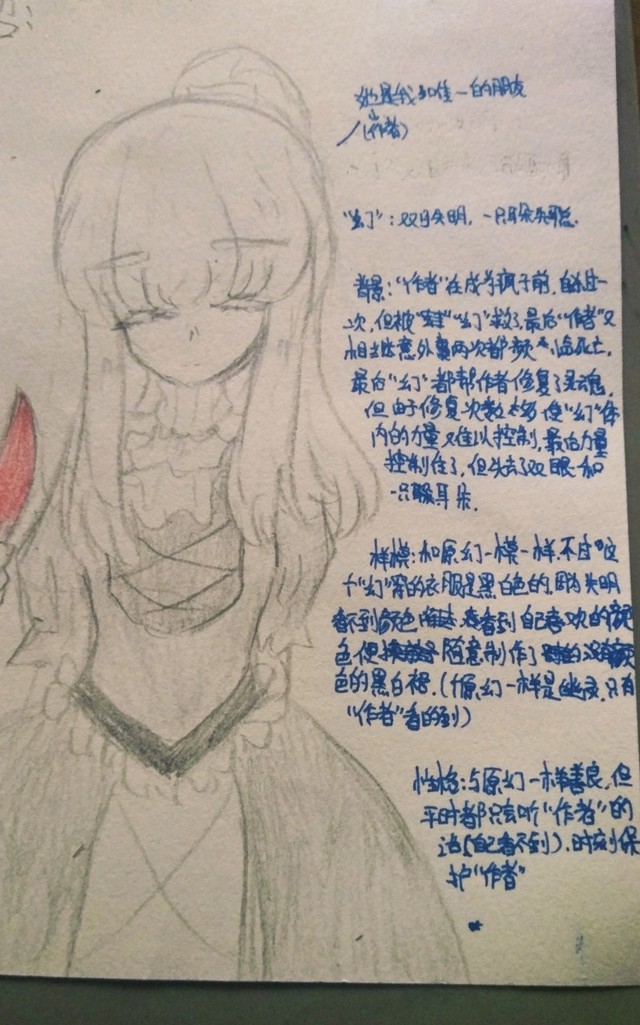 她是我和唯一的朋友
(作者)
"幻":双目失明,一只耳朵失聪.
背景:"作者"在成为疯子前,自杀过一
次,但被"幻"救了,最后"作者"又
相当意外事两次都频临死亡,
最后"幻"都帮作者修复了灵魂,
但由于修复次数太多使"幻"体
内的力量又难以控制,最后力量
控制住了,但失去了双眼和
一只耳朵.
样模:和原幻一模一样.不过"这
个"幻"穿的衣服是黑白色的,因为失明
看不到颜色 看到自己喜欢的颜
色便 随意制作了 没有颜
色的黑白裙.(原幻一样是幽灵,只有
"作者"看的到)
性格:与原幻一样善良,但
平时都只会听"作者"的
话(自己看不到).时刻保
护"作者"